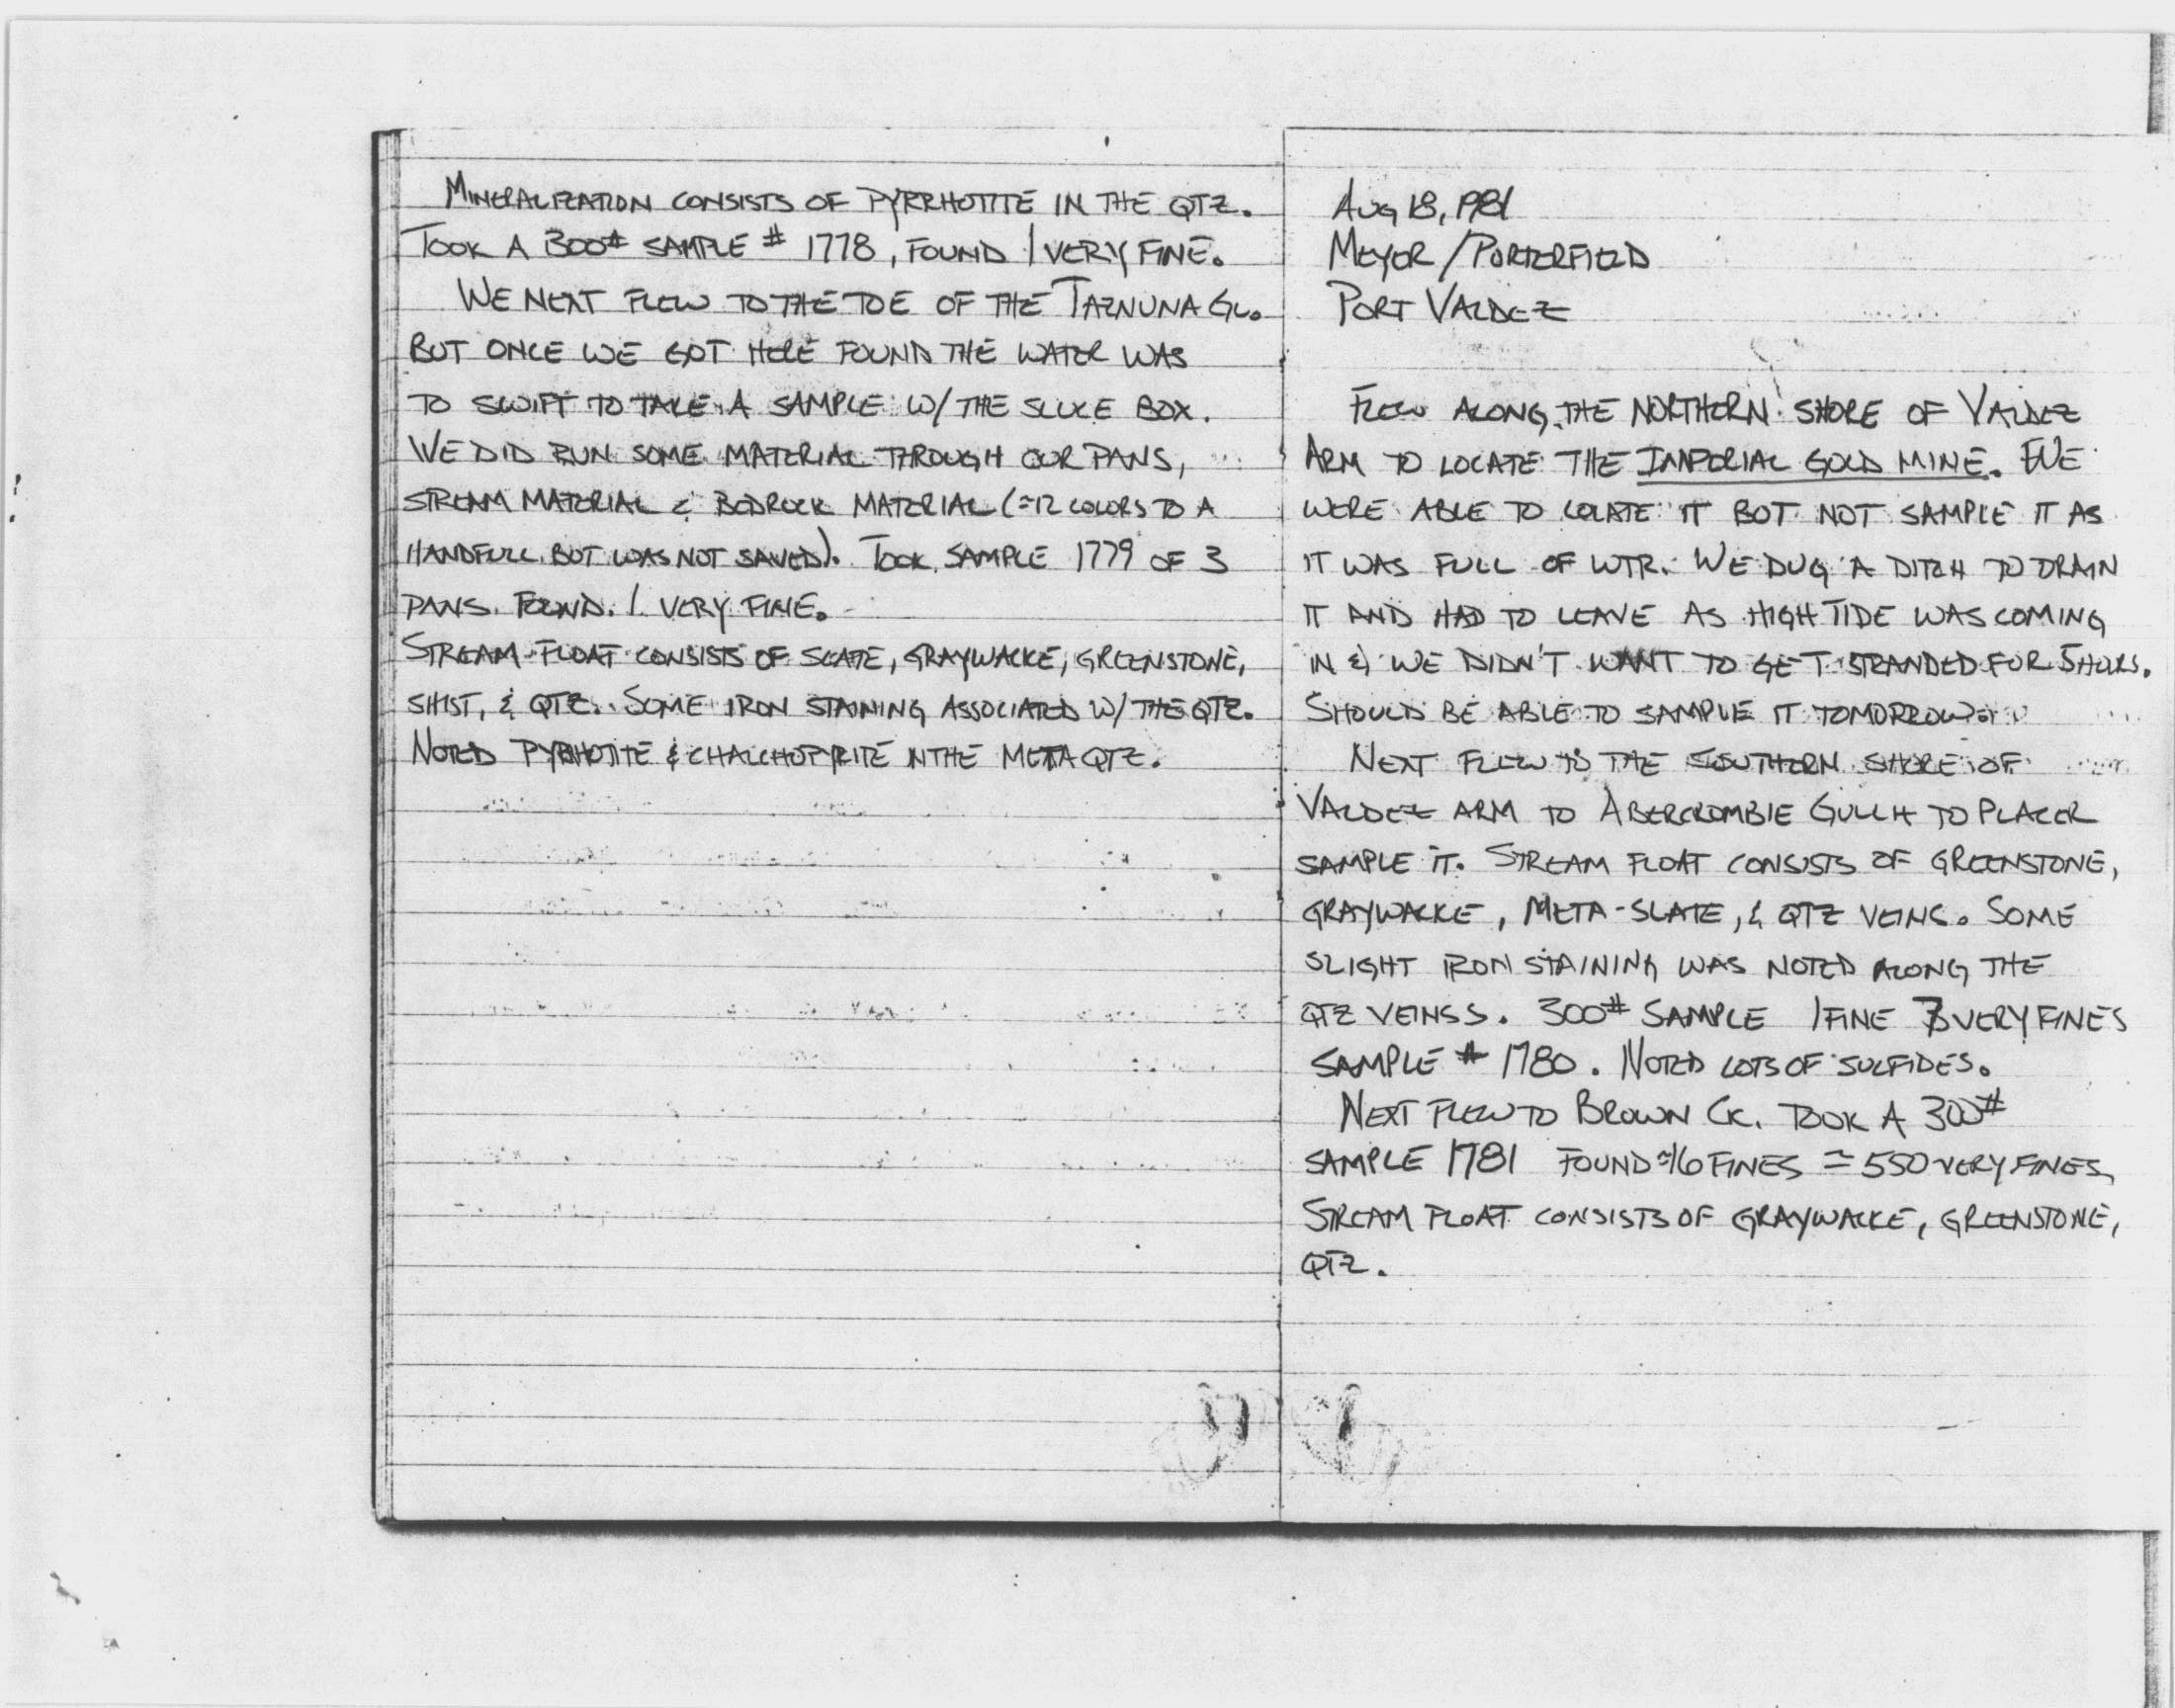 MINERALIZATION CONSISTS OF PYRRHOTITE IN THE QTZ.
TOOK A 300# SAMPLE # 1778, FOUND 1 VERY FINE.
WE NEXT FLEW TO THE TOE OF THE TAZNUNA GL.
BUT ONCE WE GOT HERE FOUND THE WATER WAS
TO SWIFT TO TAKE A SAMPLE W/ THE SLUCE BOX.
WE DID RUN SOME MATERIAL THROUGH OUR PANS,
STREAM MATERIAL & BEDROCK MATERIAL (≈12 COLORS TO A
HANDFULL BUT WAS NOT SAVED). TOOK SAMPLE 1779 OF 3
PANS. FOUND 1 VERY FINE.
STREAM FLOAT CONSISTS OF SLATE, GRAYWACKE, GREENSTONE,
SHIST, & QTZ. SOME IRON STAINING ASSOCIATED W/ THE QTZ.
NOTED PYRHOTITE & CHALCHOPYRITE IN THE META QTZ.
AUG 18, 1981
MEYER / PORTERFIELD
PORT VALDEZ
FLEW ALONG THE NORTHERN SHORE OF VALDEZ
ARM TO LOCATE THE IMPERIAL GOLD MINE. WE
WERE ABLE TO LOCATE IT BUT NOT SAMPLE IT AS
IT WAS FULL OF WTR. WE DUG A DITCH TO DRAIN
IT AND HAD TO LEAVE AS HIGH TIDE WAS COMING
IN & WE DIDN'T WANT TO GET STRANDED FOR 5 HOURS.
SHOULD BE ABLE TO SAMPLE IT TOMORROW.
NEXT FLEW TO THE SOUTHERN SHORE OF
VALDEZ ARM TO ABERCROMBIE GULCH TO PLACER
SAMPLE IT. STREAM FLOAT CONSISTS OF GREENSTONE,
GRAYWACKE, META-SLATE, & QTZ VEINS. SOME
SLIGHT IRON STAINING WAS NOTED ALONG THE
QTZ VEINSS. 300# SAMPLE 1 FINE VERY FINES
SAMPLE # 1780. NOTED LOTS OF SULFIDES.
NEXT FLEW TO BROWN CK. TOOK A 300#
SAMPLE 1781 FOUND ≈16 FINES ≈ 550 VERY FINES
STREAM FLOAT CONSISTS OF GRAYWACKE, GREENSTONE,
QTZ.